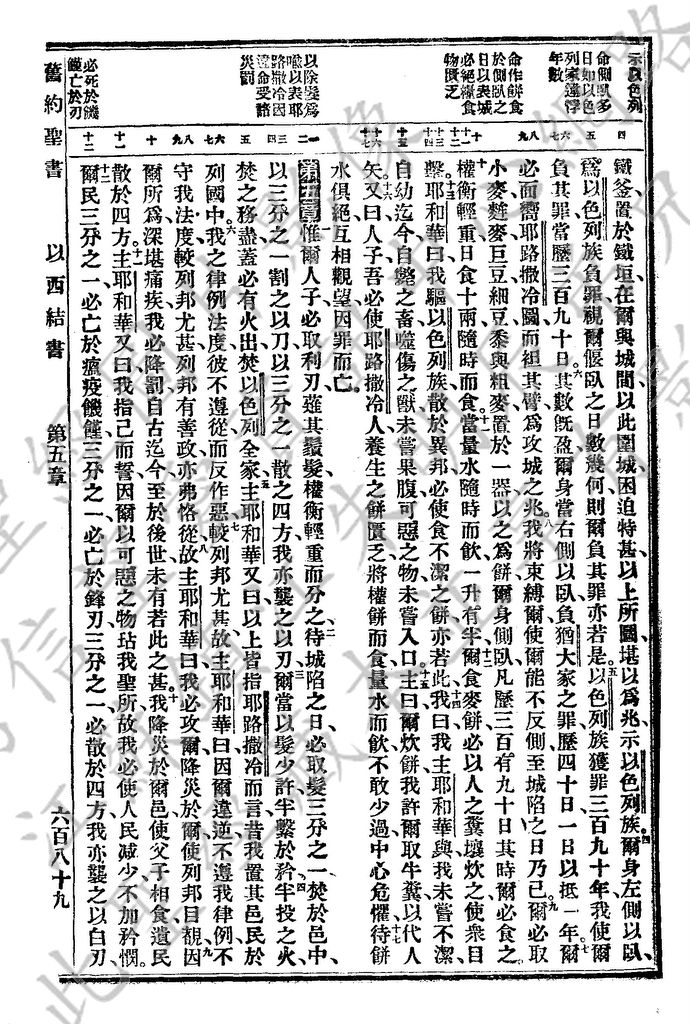 示以色列
命側臥多
日如以色
列家違悖
年數
命作餅食
於側臥之
日以表城
必絕糧食
物匱乏
以除髮為
喻以表耶
路撒冷因
違命受諸
災罰
必死於饑
饉亡於刃
四
五
六七
八九
十
十一十二
十三十四
十五
十六十七
一二
三四
五
六七
八九
十
十一
十二
鐵釜、置於鐵垣、在爾與城間、以此圍城、困迫特甚、以上所圖、堪以爲兆、示以色列族。四爾身左側以臥、
爲以色列族負罪、視爾偃臥之日數幾何、則爾負其罪亦若是。五以色列族獲罪三百九十年、我使爾
負其罪、當歷三百九十日。六其數旣盈、爾身當右側以臥、負猶大家之罪、歷四十日、一日以抵一年。七爾
必面嚮耶路撒冷圖、而袒其臂、爲攻城之兆。八我將束縛爾、使爾能不反側、至城陷之日乃已。九爾必取
小麥、麰麥、巨豆、細豆、黍、與粗麥、置於一器、以之爲餅、爾身側臥、凡歷三百有九十日、其時爾必食之。
十權衡輕重、日食十兩、隨時而食。十一當量水隨時而飲、一升有半。十二爾食麥餅、必以人之糞壤炊之、使衆目
擊。十三耶和華曰、我驅以色列族、散於異邦、必使食不潔之餅、亦若此。十四我曰、我主耶和華與、我未嘗不潔、
自幼迄今、自斃之畜、噬傷之獸、未嘗果腹、可惡之物、未嘗入口。十五主曰、爾炊餅、我許爾取牛糞、以代人
矢。十六又曰、人子、吾必使耶路撒冷人、養生之餅匱乏、將權餅而食、量水而飲、不敢少過、中心危懼。十七待餅
水俱絕、互相觀望、因罪而亡。
第五章 惟爾人子、必取利刃、薙其鬚髮、權衡輕重而分之。二待城陷之日、必取髮三分之一、焚於邑中、
以三分之一、割之以刀、以三分之一、散之四方、我亦襲之以刃。三爾當以髮少許、半繫於衿、四半投之火、
焚之移盡、蓋必有火出、焚以色列全家。五主耶和華又曰、以上皆指耶路撒冷而言、昔我置其邑民於
列國中。六我之律例法度、彼不遵從、而反作惡、較列邦尤甚。七故主耶和華曰、因爾違逆、不遵我律例、不
守我法度、較列邦尤甚、列邦有善政、亦弗恪從。八故主耶和華曰、我必攻爾、降災於爾、使列邦目覩。九因
爾所爲、深堪痛疾、我必降罰、自古迄今、至於後世、未有若此之甚。十我降災於爾邑、使父子相食、遺民
散於四方。十一主耶和華又曰、我指己而誓、因爾以可惡之物、玷我聖所、故我必使人民減少、不加矜憫。
十二爾民三分之一、必亡於瘟疫饑饉、三分之一、必亡於鋒刃、三分之一、必散於四方、我亦襲之以白刃、
舊約聖書 以西結書 第五章 六百八十九